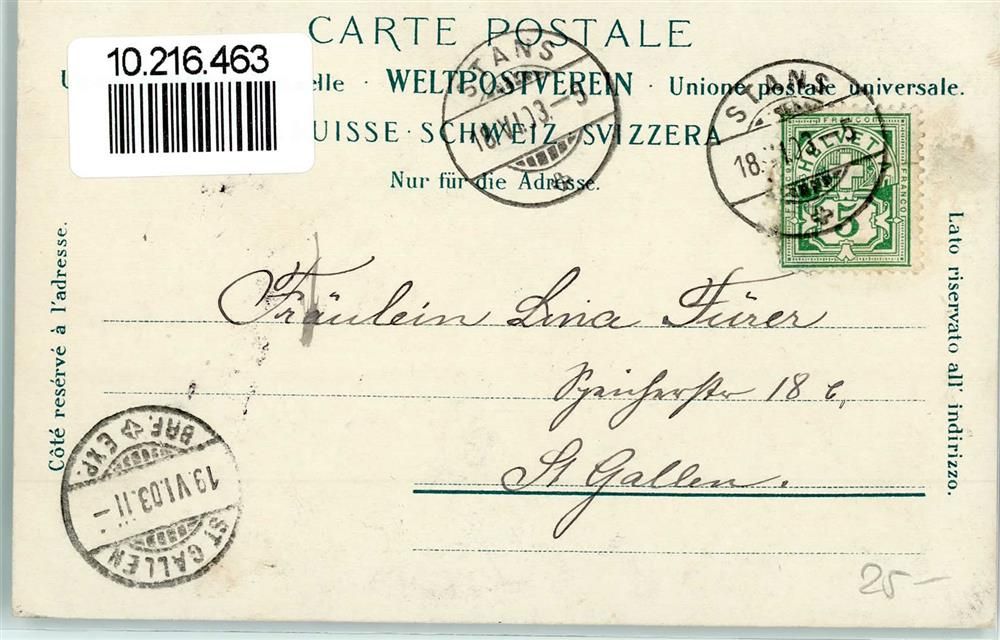 CARTE POSTALE
10.216.463
elle · WELTPOSTVEREIN · Unione postale universale.
UISSE · SCHWEIZ · SVIZZERA
Nur für die Adresse.
STANS
18.VI.03.-5
STANS
18. 03. 5
FRANCO
HELVETIA
FRANCO
5
Côté resérvé à l'adresse.
Lato riservato all' indirizzo.
Fräulein Lina Fürer
Speicherstr 18 c,
St Gallen.
BRF. EXP.
19.VI.03.11-
ST. GALLEN
25-